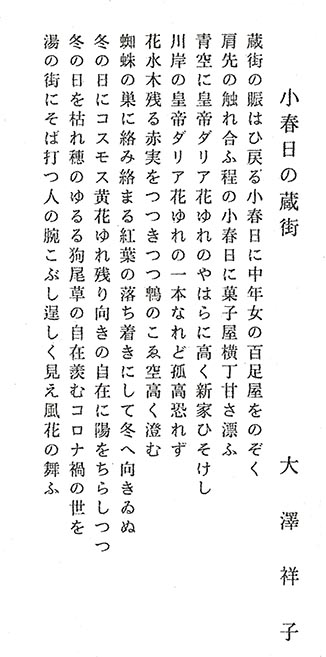 小春日の蔵街
大澤祥子
蔵街の賑はひ戻る小春日に中年女の百足屋をのぞく
肩先の触れ合ふ程の小春日に菓子屋横丁甘さ漂ふ
青空に皇帝ダリア花ゆれのやはらに高く新家ひそけし
川岸の皇帝ダリア花ゆれの一本なれど孤高恐れず
花水木残る赤実をつつきつつ鵯のこゑ空高く澄む
蜘蛛の巣に絡み絡まる紅葉の落ち着きにして冬へ向きゐぬ
冬の日にコスモス黄花ゆれ残り向きの自在に陽をちらしつつ
冬の日を枯れ穂のゆるる狗尾草の自在羨むコロナ禍の世を
湯の街にそば打つ人の腕こぶし逞しく見え風花の舞ふ